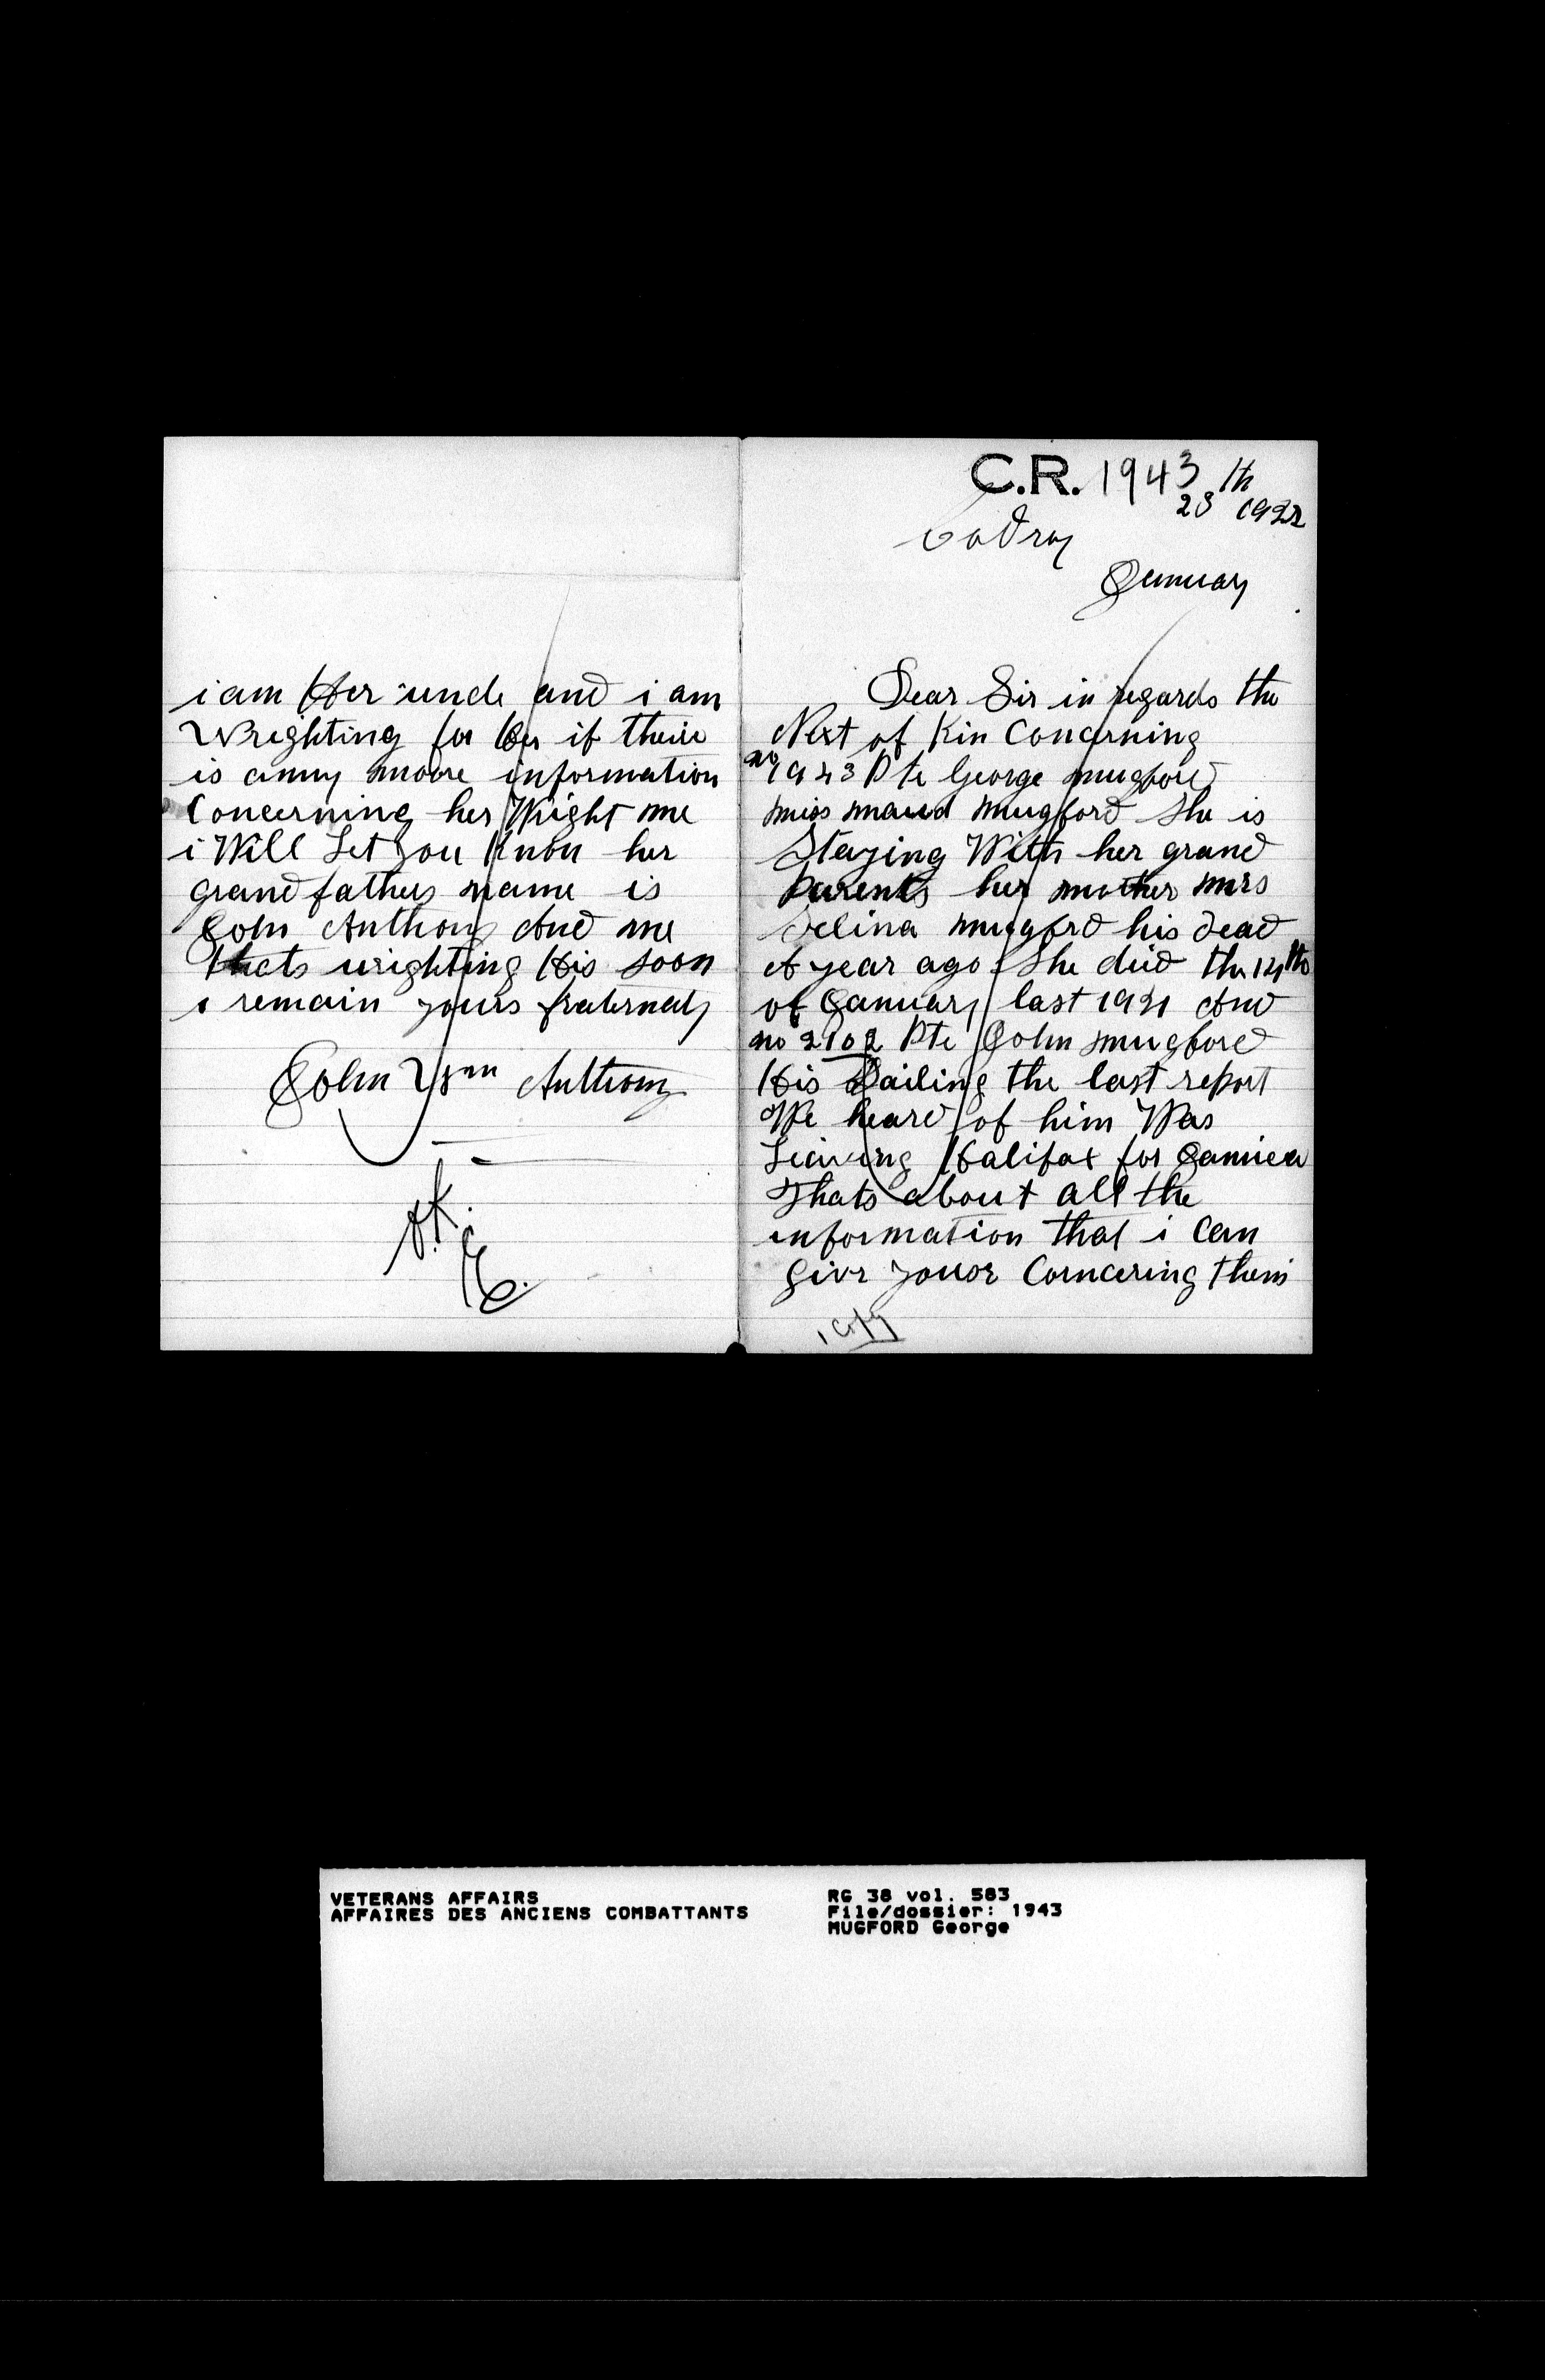 C.R. 1943
28th 1922
Codroy
January
Dear Sir in regards the
Next of Kin Concerning
no 1943 Pte George mugford
miss maud mugford She is
Staying With her grand
Parents her mother mrs
Selina mugford his dead
A year ago She died the 14th
of January last 1921 And
no 2102 Pte John mugford
His Sailing the last report
We heard of him Was
Leaving Halifax for Jamica
Thats about all the
information that i can
give youor Corncering them
1 copy
i am Her uncle and i am
Wrighting for her if their
is anny moore information
Concerning her Wright me
i Will Let you Know her
grandfathers name is
John Anthony And me
thats wrighting His soon
i remain yours fraternaly
John Wm Anthony
VETERANS AFFAIRS
AFFAIRES DES ANCIENS COMBATTANTS
RG 38 vol. 583
File/dossier: 1943
MUGFORD George